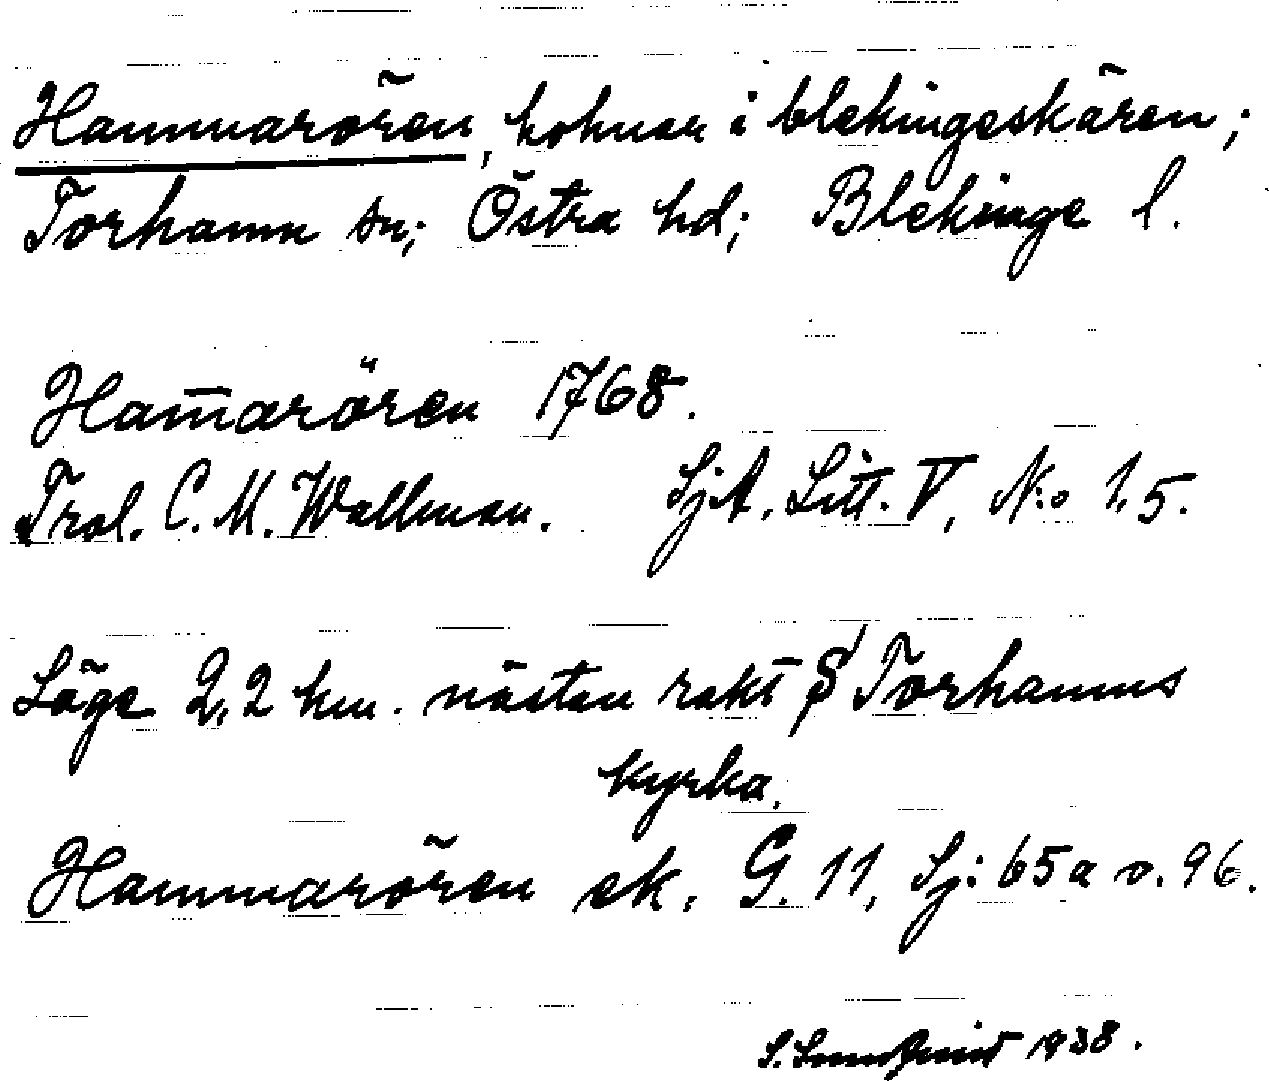 Hammarören, holmar i blekingeskären;
Torhamn sn; Östra hd; Blekinge l.
Ham̄arören 1768.
Trol. C. M. Wallman. SjA. Litt. V, N:o 15.
Läge 2,2 km. nästan rakt S Torhamns
kyrka.
Hammarören ek. G. 11, Sj: 65a o. 96.
S. 1938.